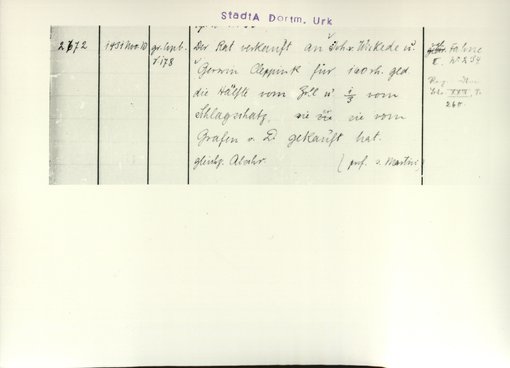 StadtA Dortm. Urk
2672 1451 Nov. 10 gr. Urk. 178
Der Rat verkauft an Joh. v. Wickede u.
Gerwin Cleppink für 100 rh. gld
die Hälfte vom Zoll u 1/3 vom
Schlagschatz, sie vom
Grafen v. D. gekauft hat.
gleichz. Abschr. (prof. s. Martini)
Fahne
II. N° 254
Reg.
260.